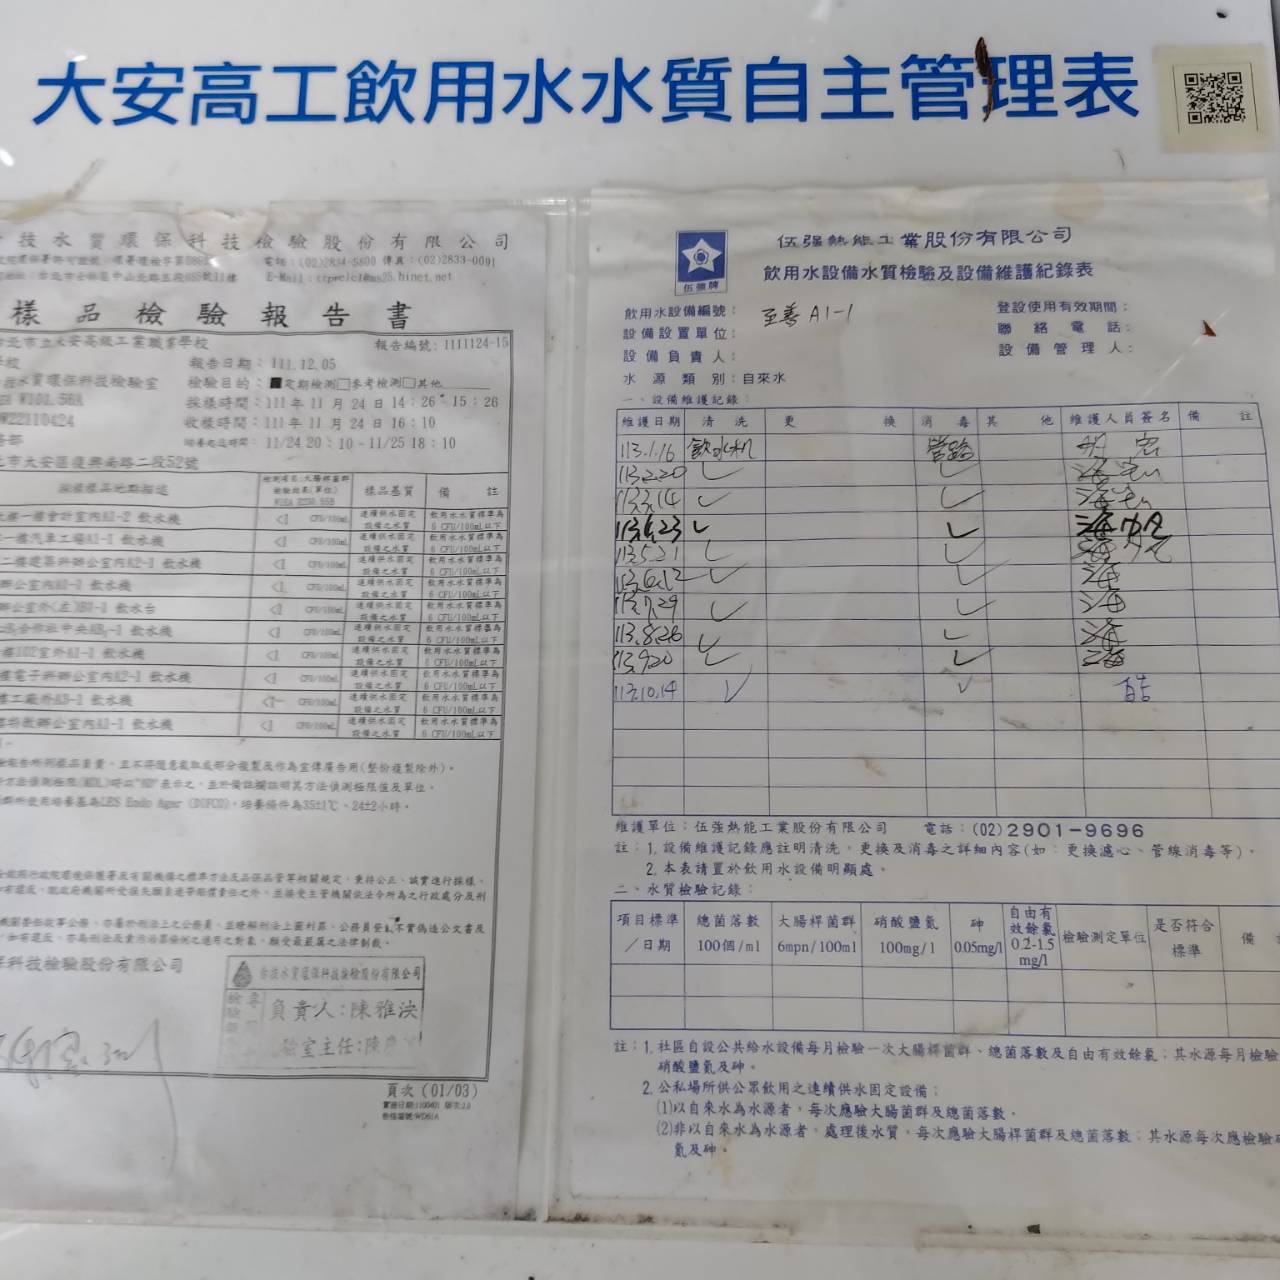 大安高工飲用水水質自主管理表
技水質環保科技檢驗股份有限公司
電話:(02)2834-5800 傳真:(02)2833-0091
樣品檢驗報告書
北市立大安高級工業職業學校 報告編號:1111124-15
學校 報告日期:111.12.05
技水質環保科技檢驗室 檢驗目的:■定期檢測□參考檢測□其他
W101.56A 採樣時間:111年11月24日14:26-15:26
W22110424 收樣時間:111年11月24日16:10
11/24 20:10-11/25 18:10
北市大安區復興南路二段52號
採樣樣品地點描述 樣品基質 備註
一樓會計室內A1-2 飲水機 <1 CFU/100mL 連續供水固定設備之水質 飲用水水質標準為6 CFU/100mL以下
一樓汽車工場A1-1 飲水機 <1 CFU/100mL 連續供水固定設備之水質 飲用水水質標準為6 CFU/100mL以下
二樓建築科辦公室內A2-1 飲水機 <1 CFU/100mL 連續供水固定設備之水質 飲用水水質標準為6 CFU/100mL以下
辦公室內A1-1 飲水機 <1 CFU/100mL 連續供水固定設備之水質 飲用水水質標準為6 CFU/100mL以下
辦公室外(左)B1-1 飲水台 <1 CFU/100mL 連續供水固定設備之水質 飲用水水質標準為6 CFU/100mL以下
合作社中央AB1-1 飲水機 <1 CFU/100mL 連續供水固定設備之水質 飲用水水質標準為6 CFU/100mL以下
樓102室外A1-1 飲水機 <1 CFU/100mL 連續供水固定設備之水質 飲用水水質標準為6 CFU/100mL以下
樓電子科辦公室內A2-1 飲水機 <1 CFU/100mL 連續供水固定設備之水質 飲用水水質標準為6 CFU/100mL以下
樓工廠外A3-1 飲水機 <1 CFU/100mL 連續供水固定設備之水質 飲用水水質標準為6 CFU/100mL以下
辦公室內A1-1 飲水機 <1 CFU/100mL 連續供水固定設備之水質 飲用水水質標準為6 CFU/100mL以下
報告所列樣品負責,且不得隨意截取或部分複製及作為宣傳廣告用(整份複製除外)。
方法偵測極限(MDL)時以"ND"表示之,並於備註欄註明其方法偵測極限值及單位。
群所使用培養基為LES Endo Agar (DIFCO),培養條件為35±1℃、24±2小時。
科技檢驗股份有限公司
台技水質環保科技檢驗股份有限公司
負責人:陳雅泱
驗室主任:陳
頁次(01/03)
伍強牌
伍强熱能工業股份有限公司
飲用水設備水質檢驗及設備維護紀錄表
飲用水設備編號: 至善 A1-1 登設使用有效期間:
設備設置單位: 聯絡電話:
設備負責人: 設備管理人:
水源類別:自來水
一、設備維護記錄:
維護日期 清洗 更換 消毒 其他 維護人員簽名 備註
113.1.16 飲水機 管路
113.2.20 ✓ ✓
113.3.14 ✓ ✓
✓ ✓
113.5.21 ✓ ✓
113.6.12 ✓ ✓ 海
113.7.29 ✓ ✓ 海
113.8.26 ✓ ✓ 海
113.9.20 ✓ ✓ 海
113.10.14 ✓ ✓
維護單位:伍強熱能工業股份有限公司 電話:(02)2901-9696
註:1.設備維護記錄應註明清洗,更換及消毒之詳細內容(如:更換濾心、管線消毒等)。
2.本表請置於飲用水設備明顯處。
二、水質檢驗記錄:
項目標準/日期 總菌落數100個/ml 大腸桿菌群6mpn/100ml 硝酸鹽氮100mg/l 砷0.05mg/l 自由有效餘氯0.2-1.5mg/l 檢驗測定單位 是否符合標準 備
註:1.社區自設公共給水設備每月檢驗一次大腸桿菌群、總菌落數及自由有效餘氯;其水源每月檢驗
硝酸鹽氮及砷。
2.公私場所供公眾飲用之連續供水固定設備:
(1)以自來水為水源者,每次應驗大腸菌群及總菌落數。
(2)非以自來水為水源者,處理後水質,每次應驗大腸桿菌群及總菌落數;其水源每次應檢驗
氮及砷。